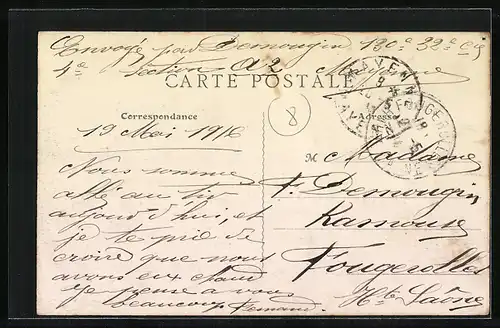 Envoyé par Demougin 130e 32e Cie
4e Section A2 Mayenne
CARTE POSTALE
8
Correspondance
Adresse
19 Mai 1916
Nous somme
allé au tir
aujourd'hui, et
je te prie de
croire que nous
avons eux chaud
Je pense a vous
beaucoup Fernand
M Madame
F. Demougin
Ramouse
Fougerolles
Hte Saône
MAYENNE
FOUGEROLLES